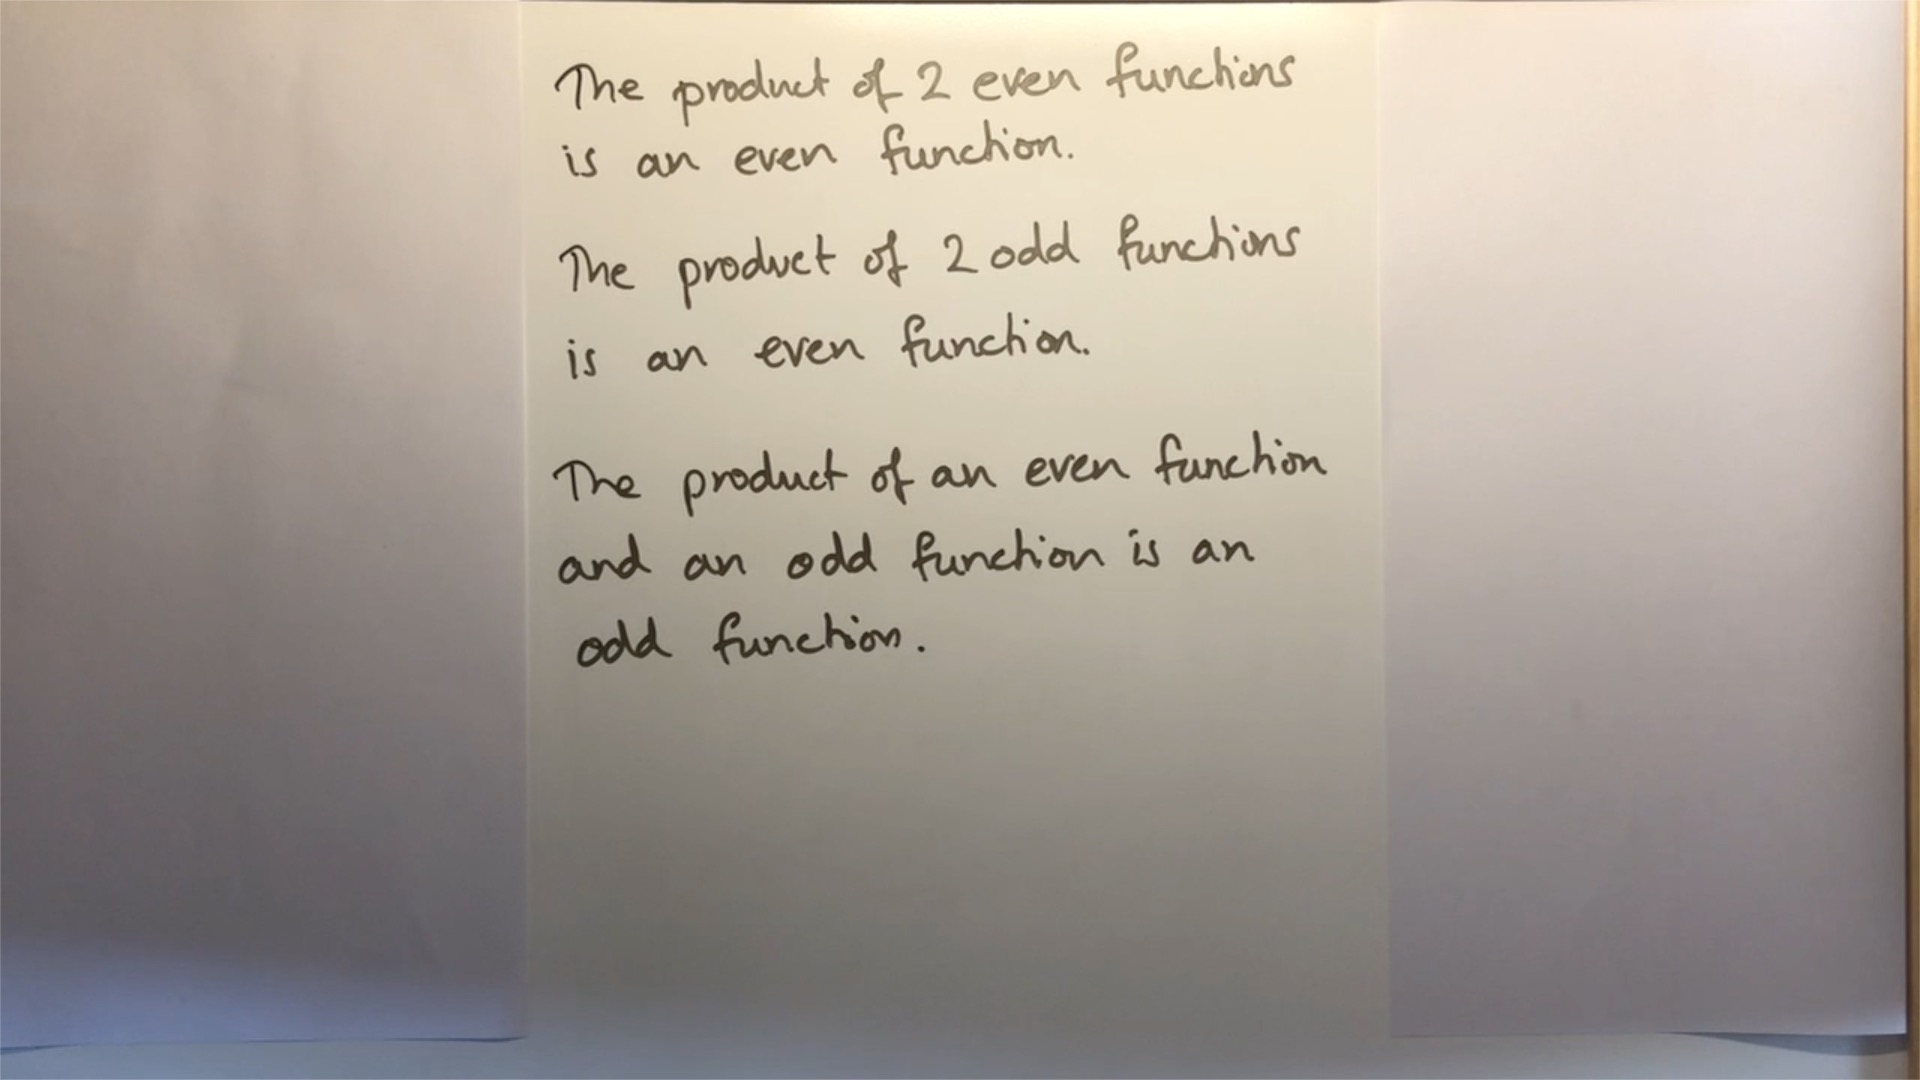 The product of 2 even functions
is an even function.
The product of 2 odd functions
is an even function.
The product of an even function
and an odd function is an
odd function.